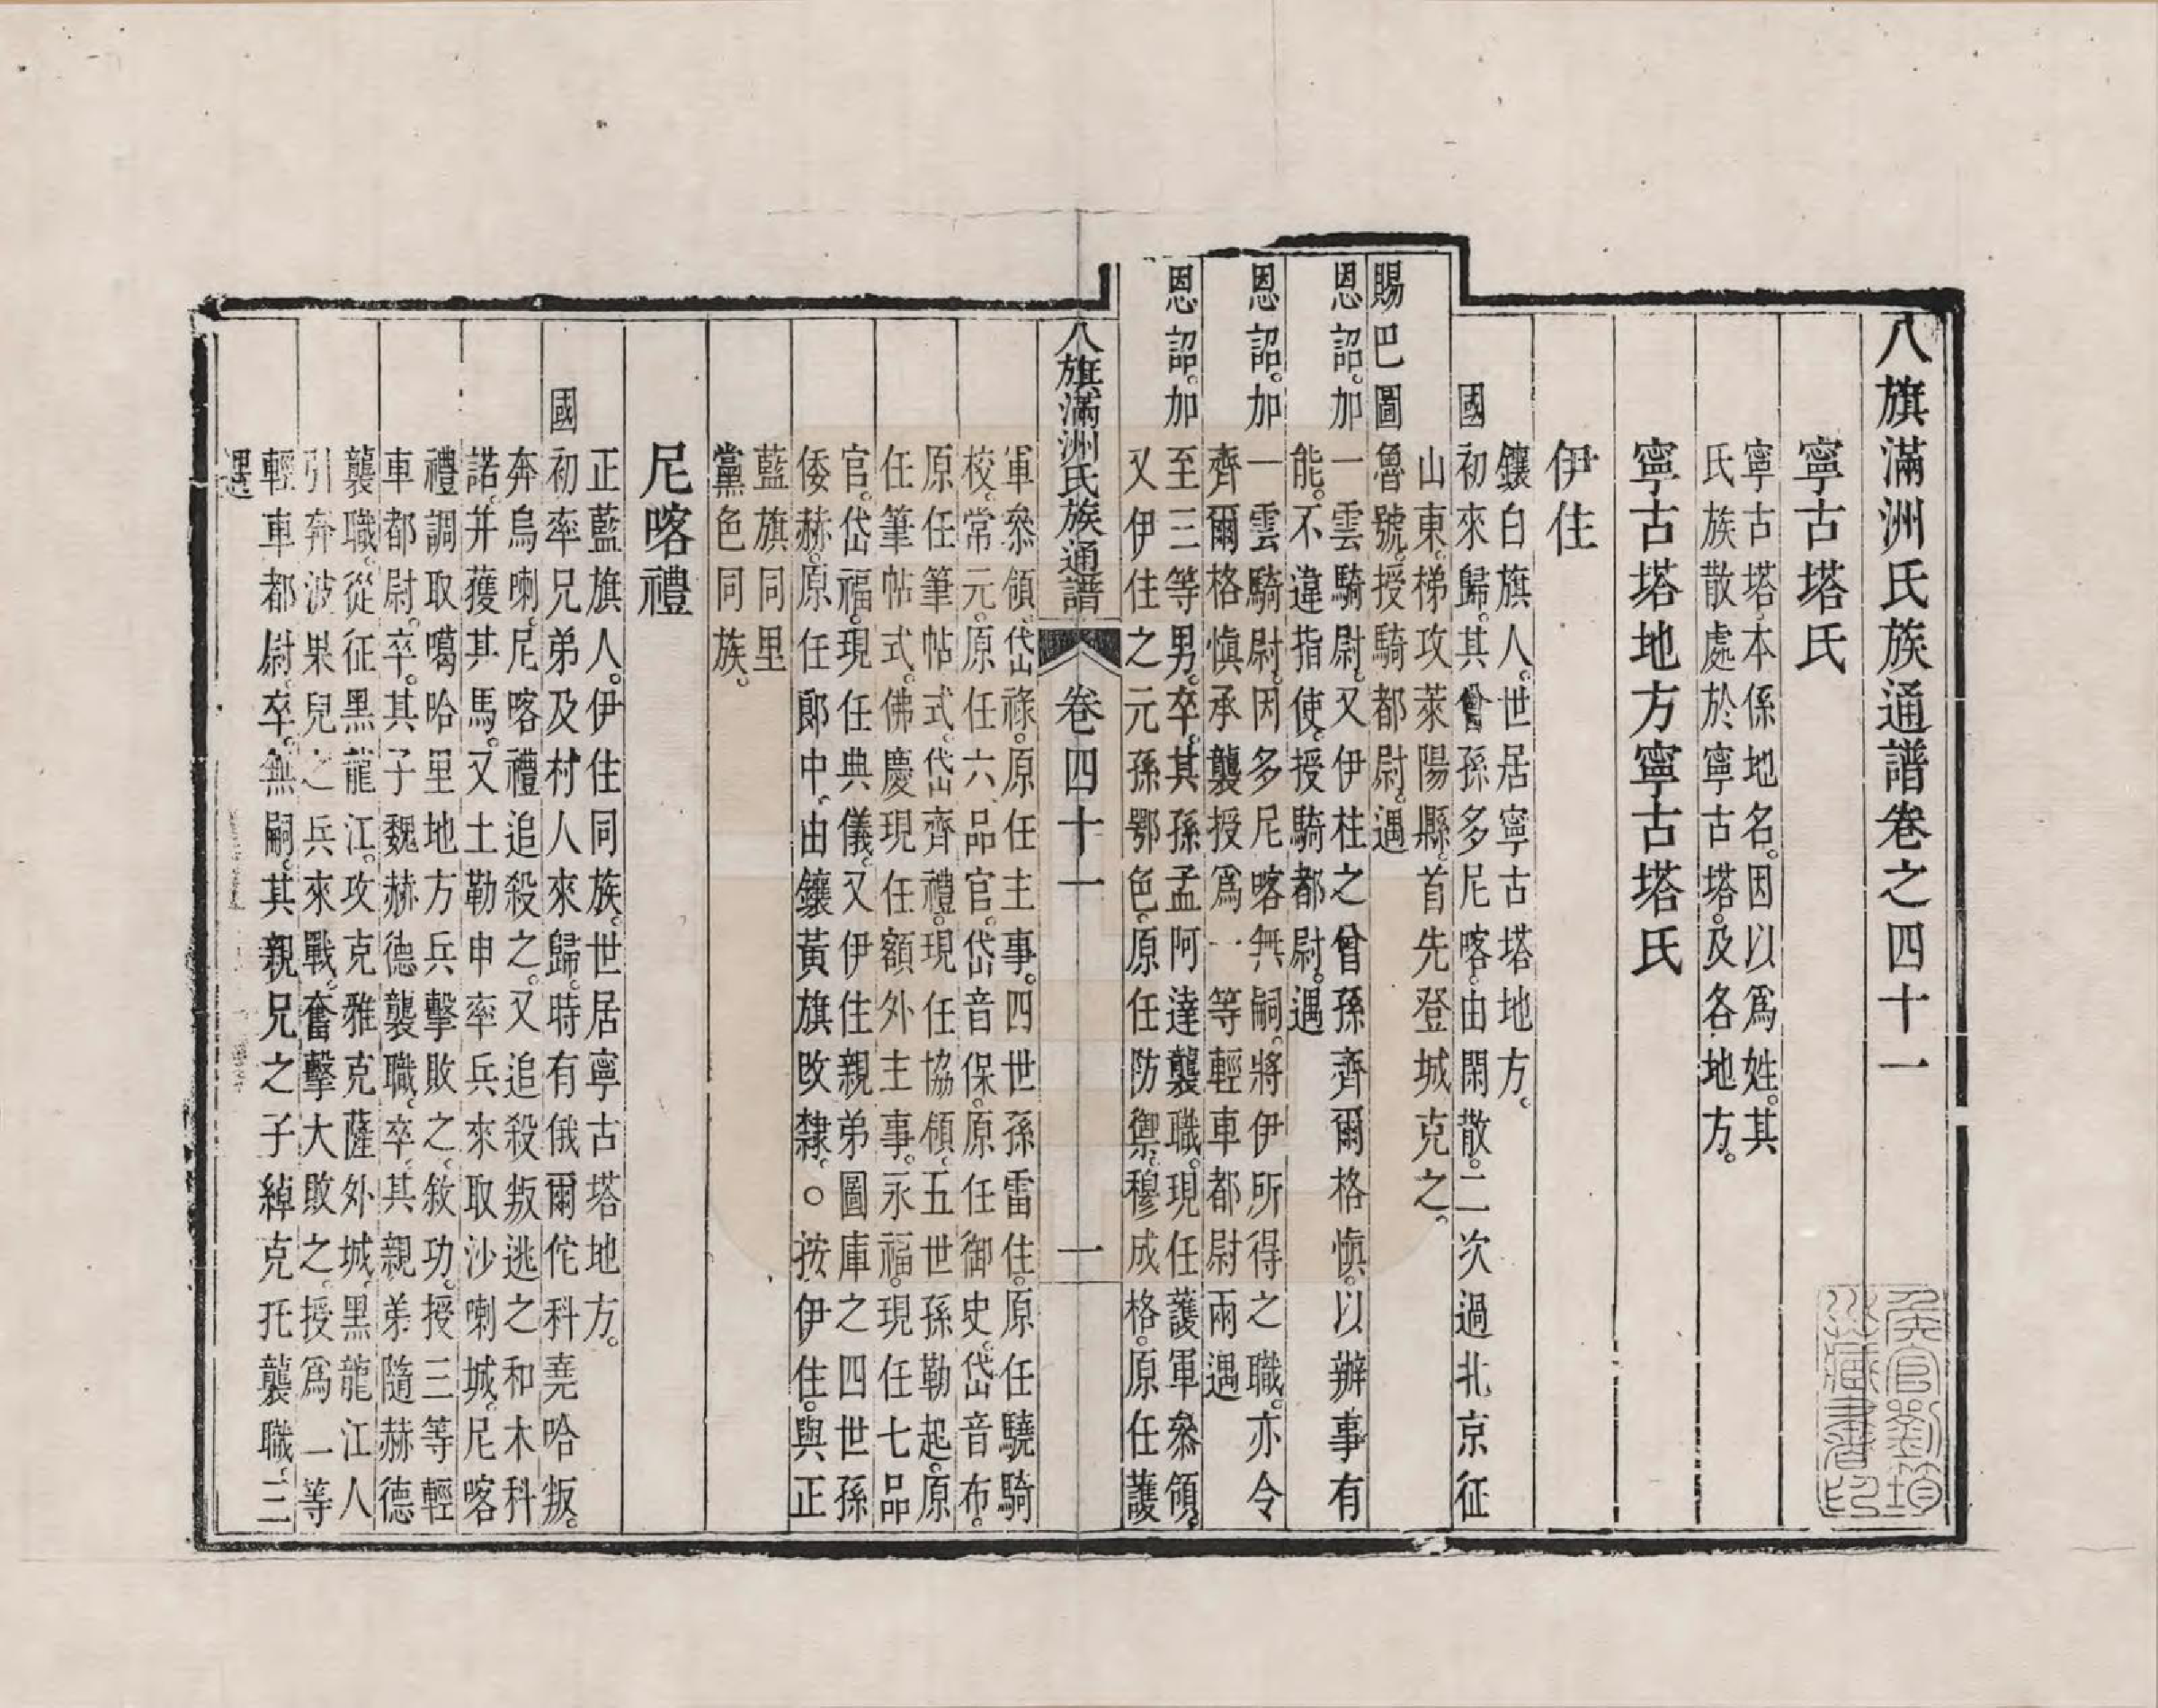 八旗滿洲氏族通譜卷之四十一
寧古塔氏
寧古塔本係地名。因以爲姓。其
氏族散處於寧古塔。及各地方。
寧古塔地方寧古塔氏
伊住
鑲白旗人。世居寧古塔地方。
國初來歸。其曾孫多尼喀。由閑散。二次過北京征
山東。梯攻萊陽縣。首先登城克之。
賜巴圖魯號。授騎都尉。遇
恩詔。加一雲騎尉。又伊柱之曾孫齊爾格愼。以辦事有
能。不違指使。授騎都尉。遇
恩詔。加一雲騎尉。因多尼喀無嗣。將伊所得之職。亦令
齊爾格愼承襲。授爲一等輕車都尉。兩遇
恩詔。加至三等男。卒。其孫孟阿達襲職。現任護軍叅領。
又伊住之元孫鄂色。原任防禦。穆成格。原任護
軍叅領。岱祿。原任主事。四世孫雷住。原任驍騎
校。常元。原任六品官。岱音保。原任御史。岱音布。
原任筆帖式。岱齊禮。現任協領。五世孫勒起。原
任筆帖式。佛慶。現任額外主事。永福。現任七品
官。岱福。現任典儀。又伊住親弟圖庫之四世孫
倭赫。原任郎中。由鑲黃旗改隸。○按伊住。與正
藍旗同里
黨色同族。
尼喀禮
正藍旗人。伊住同族。世居寧古塔地方。
國初率兄弟及村人來歸。時有俄爾佗科堯哈叛。
奔烏喇。尼喀禮追殺之。又追殺叛逃之和木科
諾。并獲其馬。又土勒申率兵來取沙喇城。尼喀
禮調取噶哈里地方兵擊敗之。敘功。授三等輕
車都尉。卒。其子魏赫德襲職。卒。其親弟隨赫德
襲職。從征黑龍江。攻克雅克薩外城。黑龍江人
引奔波果兒之兵來戰。奮擊大敗之。授爲一等
輕車都尉。卒。無嗣。其親兄之子綽克托襲職。三
遇
八旗滿洲氏族通譜 卷四十一 一